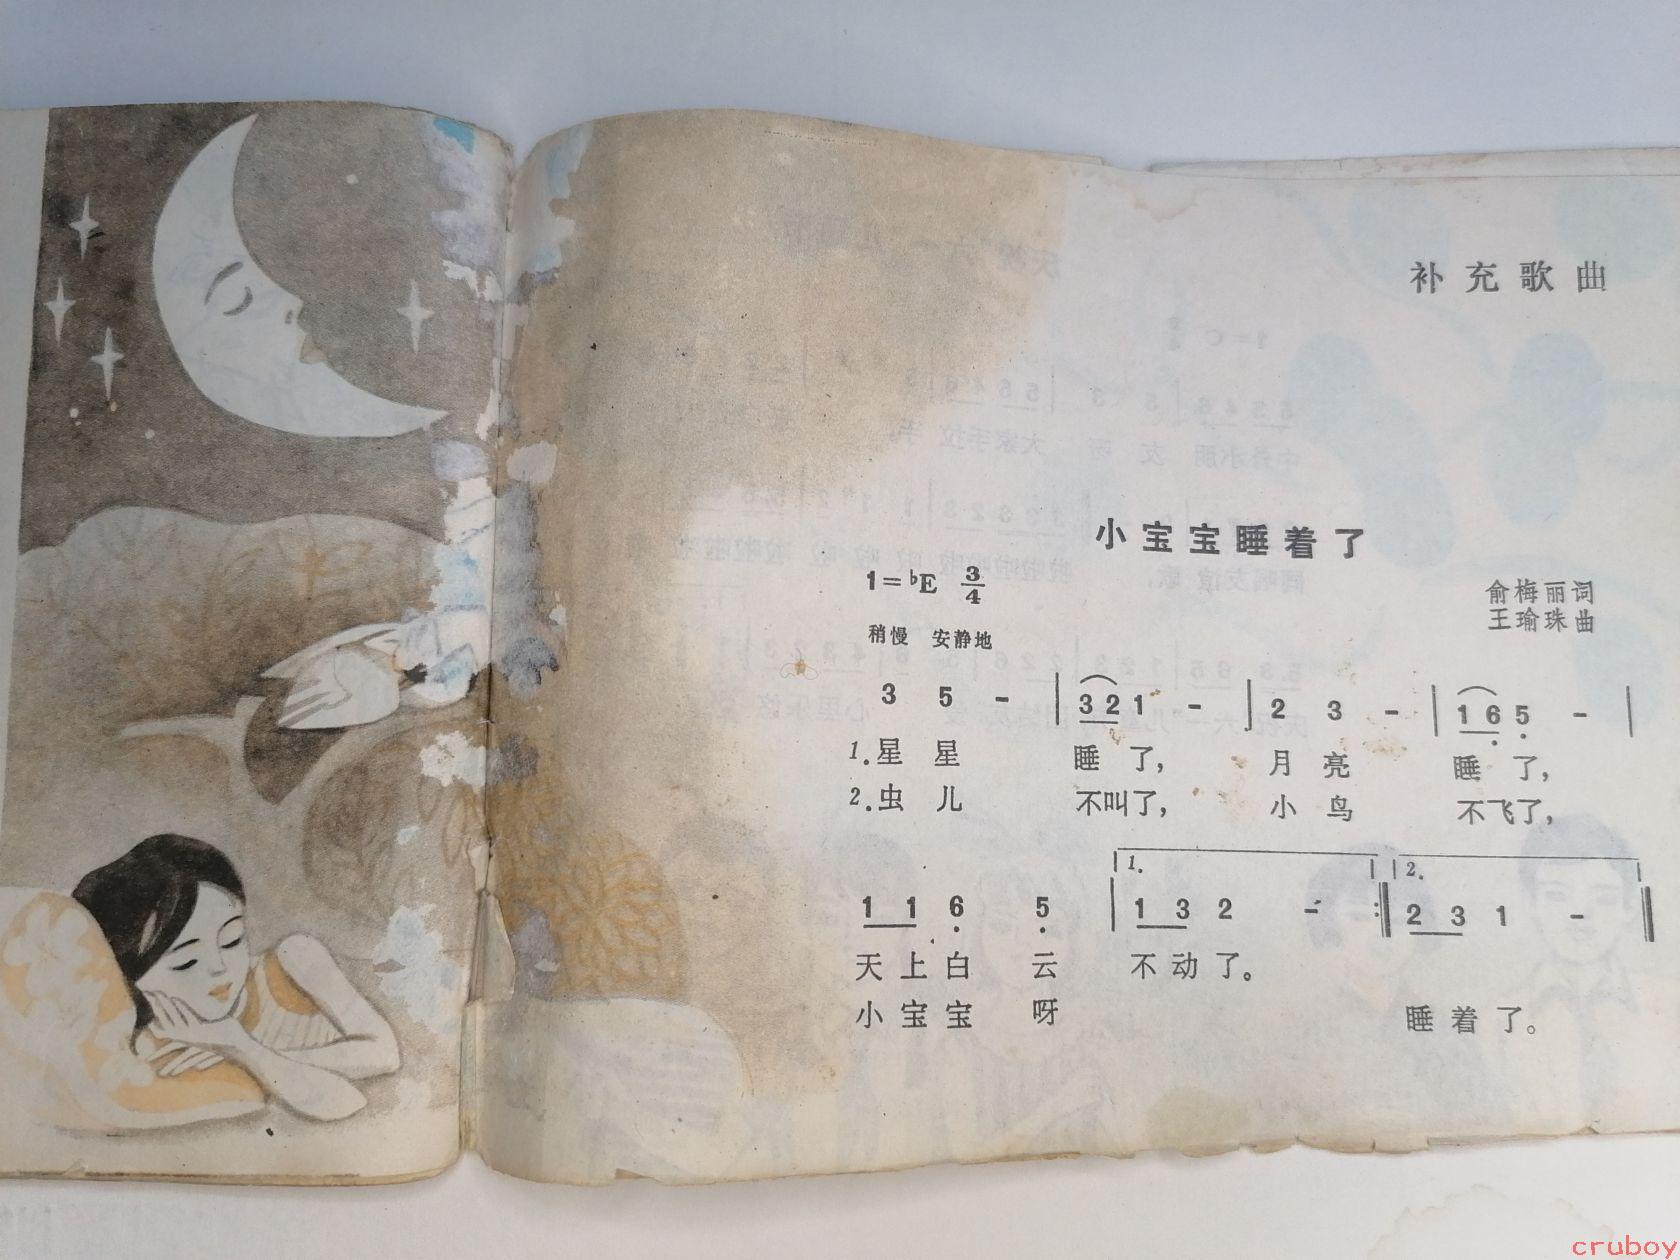 补充歌曲
小宝宝睡着了
1=♭E 3/4
俞梅丽词
王瑜珠曲
稍慢 安静地
3 5 - | 3 2 1 - | 2 3 - | 1 6̣ 5̣ - |
1.星星 睡了, 月亮 睡了,
2.虫儿 不叫了, 小鸟 不飞了,
1. 2.
1 1 6̣ 5̣ | 1 3 2 - :‖ 2 3 1 - ‖
天上白云 不动了。
小宝宝呀 睡着了。
cruboy